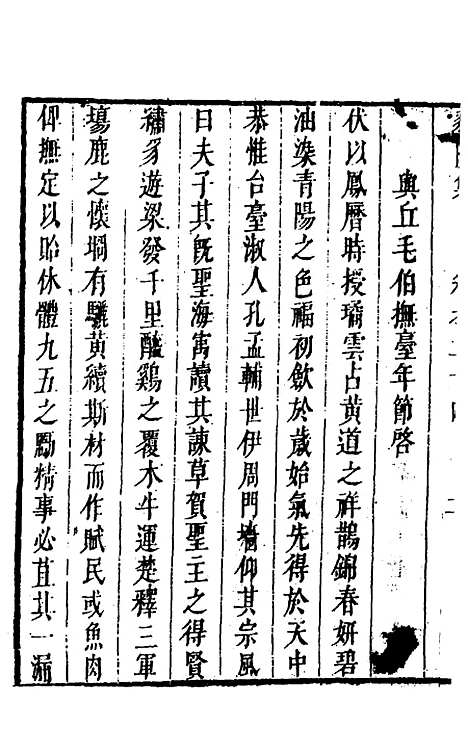 與丘毛伯撫臺年節啓
伏以鳳曆時授璚雲占黄道之祥鵲錦春妍碧
油染青陽之色福初歛於歲始氣先得於天中
恭惟台臺淑人孔孟輔世伊周門墻仰其宗風
曰夫子其旣聖海寓讀其諫草賀聖主之得賢
繡豸遊梁發千里醯鷄之覆木牛運楚釋三軍
塲鹿之懷坰有驪黄續斯材而作賦民或魚肉
仰撫定以貽休體九五之勵精事必苴其一漏